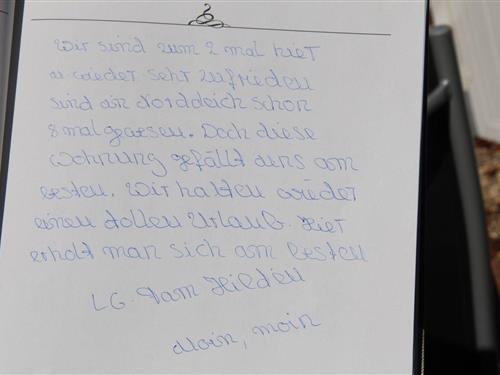 Wir sind zum 2 mal hier
u wieder sehr zufrieden
sind in Norddeich schon
8 mal gewesen. Doch diese
Wohnung gefällt uns am
besten. Wir hatten wieder
einen tollen Urlaub. Hier
erholt man sich am besten
LG. Fam
Moin, moin